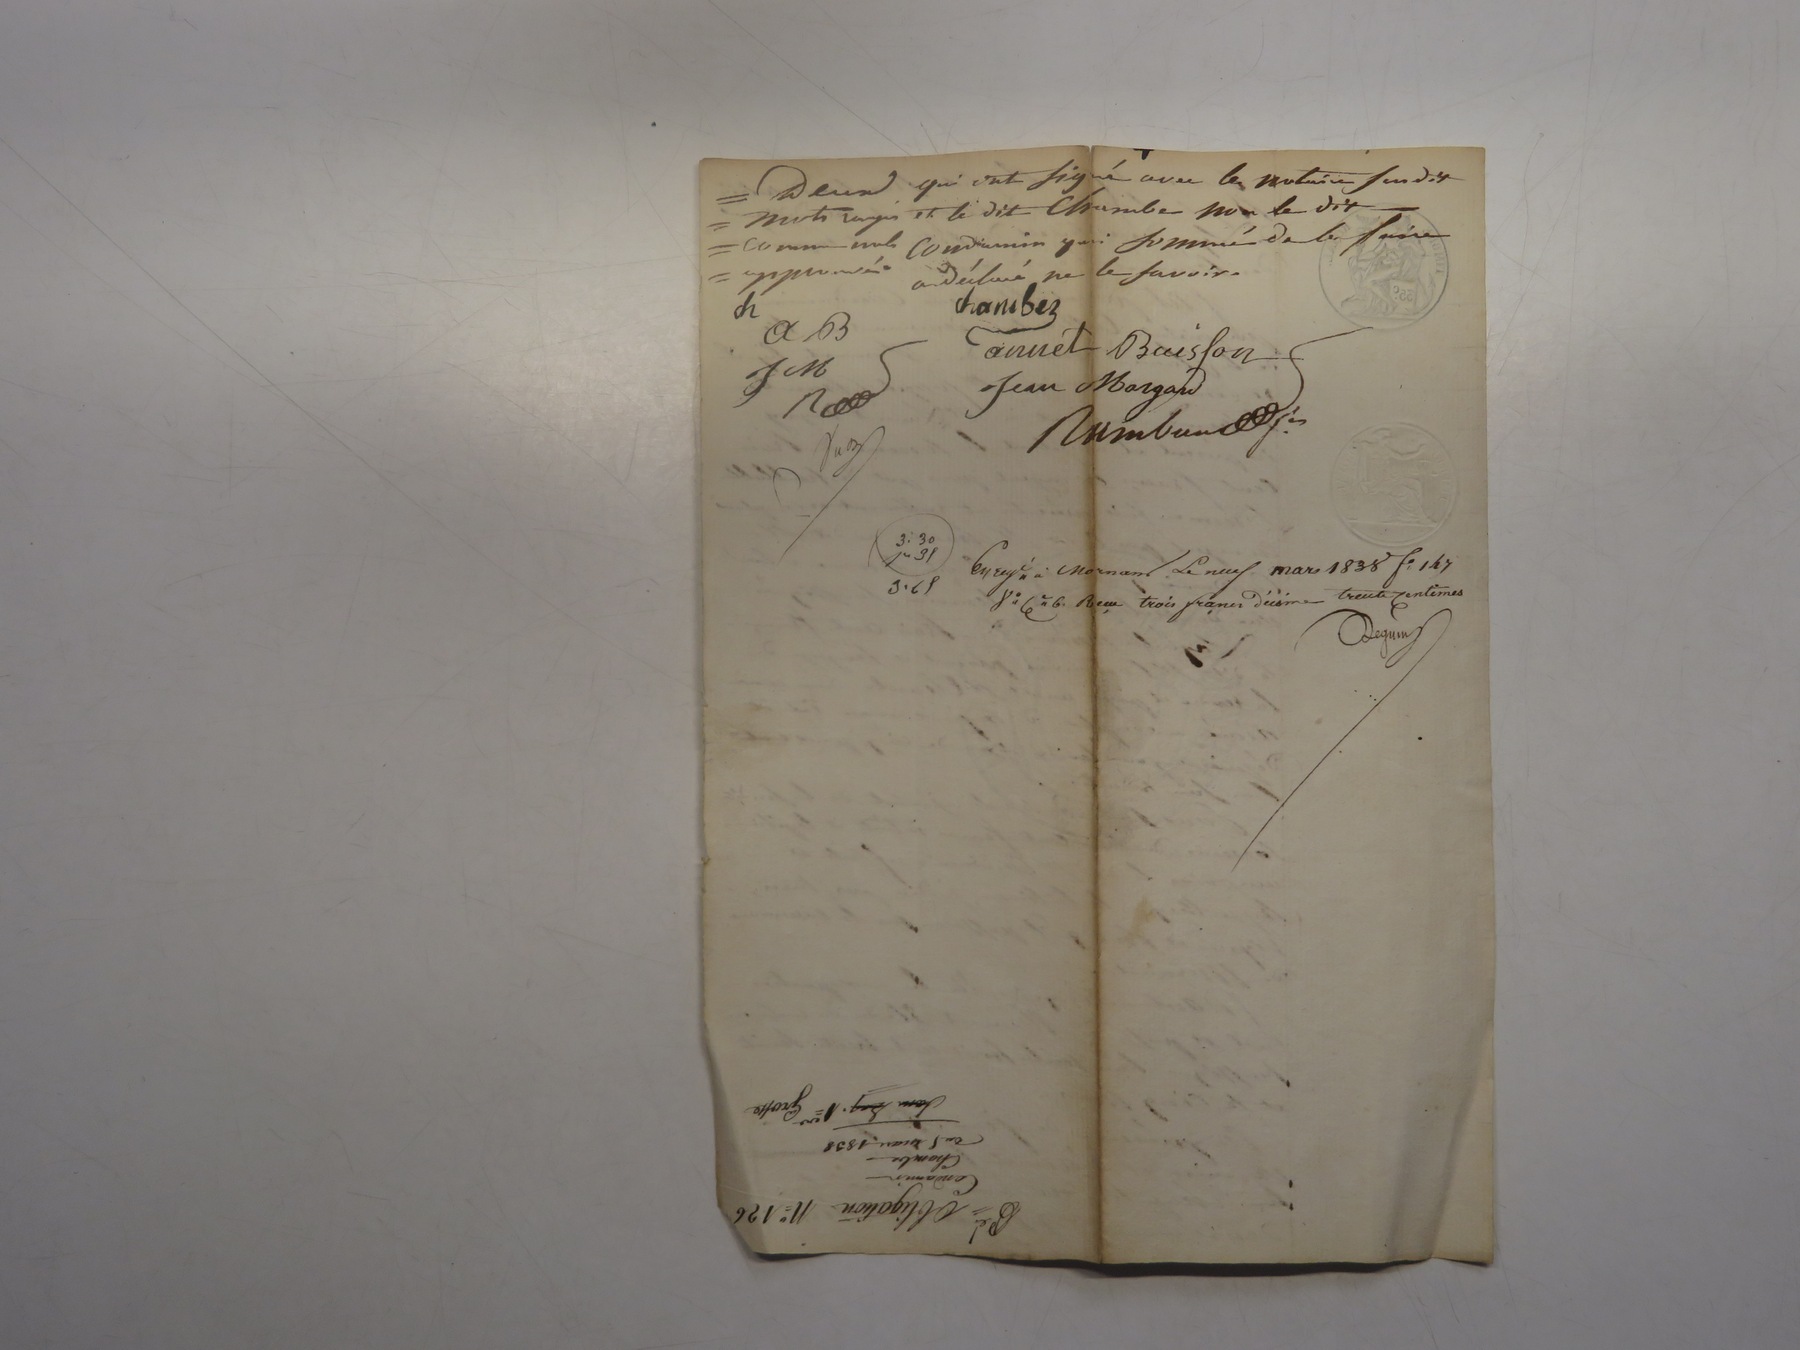 = Deux qui ont signé avec le notaire susdit
= mots rayés et le dit Chambe non le dit
= comme nuls Condamin qui sommé de le faire
= approuvés. a déclaré ne le savoir.
ch chambez
a B annet Buisson
J M Jean Margard
R
3. 30
31
3. 61
Enregé à Mornant Le neuf mars 1838 fo. 147
Vo. Cn 6. Reçu trois francs décime trente centimes
Deguin
Bel = Obligation No = 126
Condamin
Chambe
du 5 mars 1838
1ere Grosse